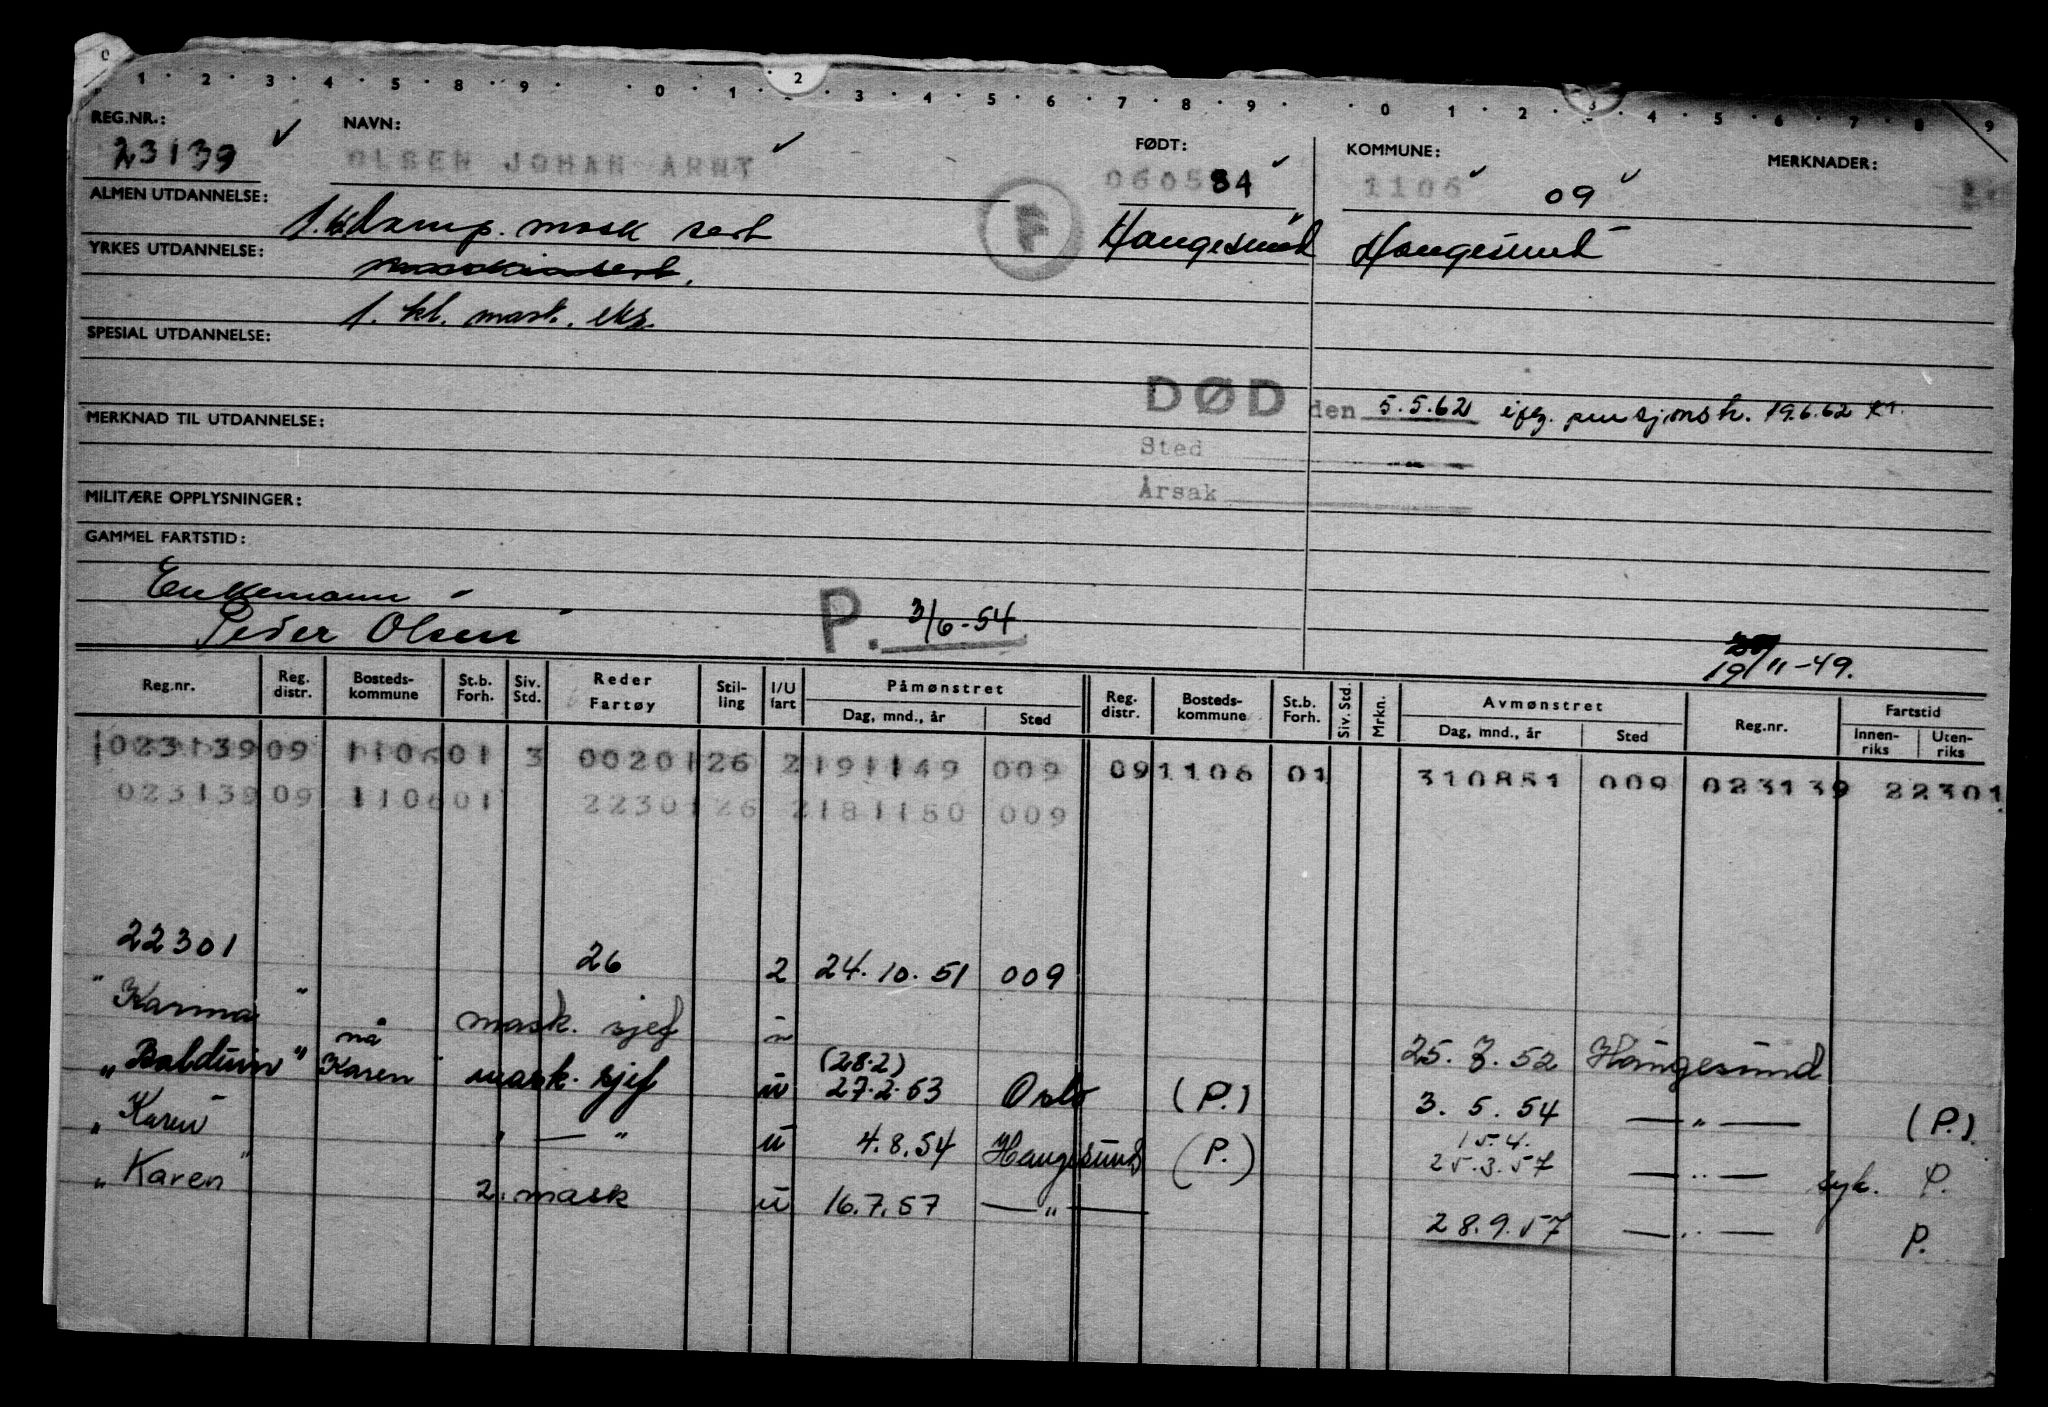 0 1 2 3 4 5 8 9 0 1 2 3 4 5 6 7 8 9 0 1 2 3 4 5 6 7 8 9
REG.NR.: NAVN: FØDT: KOMMUNE: MERKNADER:
23139 OLSEN JOHAN ARNT 060584 1106 09
ALMEN UTDANNELSE: 1. kl damp. mask sert F Haugesund Haugesund
YRKES UTDANNELSE: maskinsert.
1. kl. mask. eks.
SPESIAL UTDANNELSE:
DØD den 5.5.62 ifg. pensjonsk. 19.6.62
MERKNAD TIL UTDANNELSE:
Sted
Årsak
MILITÆRE OPPLYSNINGER:
GAMMEL FARTSTID:
Enkemann
Peder Olsen P. 3/6-54
19/11-49.
Reg.nr. Reg. distr. Bosteds-kommune St.b. Forh. Siv. Std. Reder Fartøy Stil-ling I/U fart Påmønstret Dag, mnd., år Sted Reg. distr. Bosteds-kommune St.b. Forh. Siv. Std. Mrkn. Avmønstret Dag, mnd., år Sted Reg.nr. Fartstid Innen-riks Uten-riks
023139 09 1106 01 3 0020126 2 191149 009 09 1106 01 310851 009 023139 22301
023139 09 1106 01 2230126 2 181150 009
22301 26 2 24.10.51 009
"Karma" mask. sjef " 25.7.52 Haugesund
"Balduin" nå Karen" mask. sjef u (28.2) 27.2.53 Oslo (P.) 3.5.54 — " — (P.)
"Karen" " — " u 4.8.54 Haugesund (P.) 15.4. 25.3.57 — " — syk. P.
"Karen" 2. mask u 16.7.57 — " — 28.9.57 — " — P.